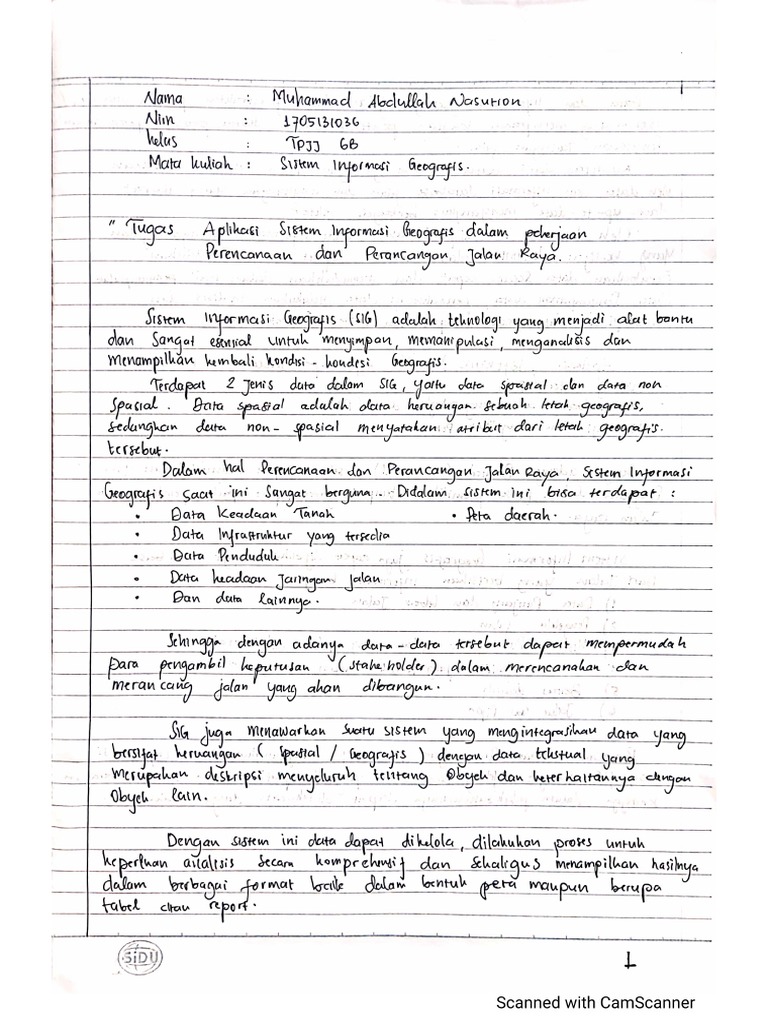 Nama : Muhammad Abdullah Nasution
Nim : 1705131036
Kelas : TPJJ 6B
Mata kuliah : Sistem Informasi Geografis.
" Tugas Aplikasi Sistem Informasi Geografis dalam pekerjaan
Perencanaan dan Perancangan Jalan Raya.
Sistem Informasi Geografis (SIG) adalah teknologi yang menjadi alat bantu
dan sangat esensial untuk menyimpan, memanipulasi, menganalisis dan
menampilkan kembali kondisi - kondesi Geografis.
Terdapat 2 jenis data dalam SIG, yaitu data spasial dan data non
spasial. Data spasial adalah data keruangan sebuah letak geografis,
sedangkan data non- spasial menyatakan atribut dari letak geografis.
tersebut.
Dalam hal Perencanaan dan Perancangan Jalan Raya, Sistem Informasi
Geografis saat ini sangat berguna.. Didalam sistem ini bisa terdapat :
• Data Keadaan Tanah • Peta daerah.
• Data Infrastruktur yang tersedia
• Data Penduduk
• Data keadaan Jaringan jalan
• Dan data lainnya.
Sehingga dengan adanya data-data tersebut dapat mempermudah
para pengambil keputusan (stakeholder) dalam merencanakan dan
merancang jalan yang akan dibangun.
SIG juga menawarkan suatu sistem yang mengintegrasikan data yang
bersifat keruangan ( spasial / Geografis ) dengan data tekstual yang
merupakan deskripsi menyeluruh tentang Obyek dan keterkaitannya dengan
Obyek lain.
Dengan sistem ini data dapat dikelola, dilakukan proses untuk
keperluan analisis secara komprehensif dan sekaligus menampilkan hasilnya
dalam berbagai format baik dalam bentuk peta maupun berupa
tabel atau report.
SiDU
1
Scanned with CamScanner